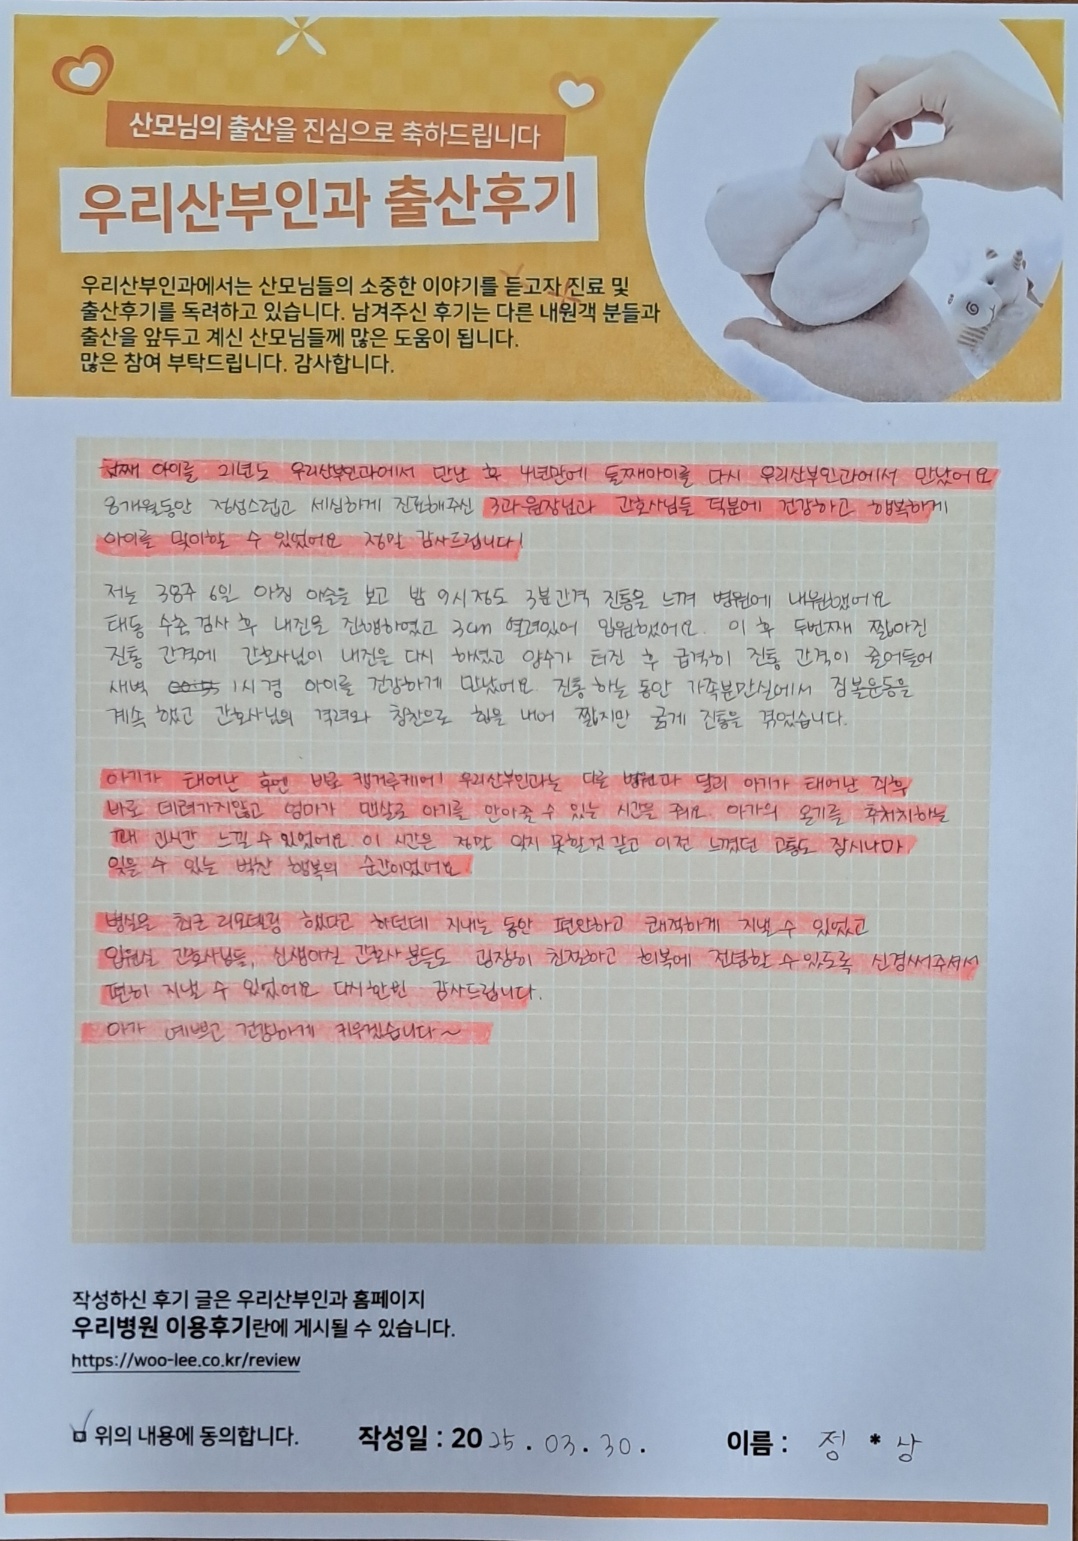 산모님의 출산을 진심으로 축하드립니다
우리산부인과 출산후기
우리산부인과에서는 산모님들의 소중한 이야기를 듣고자 진료 및
출산후기를 독려하고 있습니다. 남겨주신 후기는 다른 내원객 분들과
출산을 앞두고 계신 산모님들께 많은 도움이 됩니다.
많은 참여 부탁드립니다. 감사합니다.
첫째 아이를 21년도 우리산부인과에서 만난 후 4년만에 둘째아이를 다시 우리산부인과에서 만났어요
8개월동안 정성스럽고 세심하게 진료해주신 3과 원장님과 간호사님들 덕분에 건강하고 행복하게
아이를 맞이할 수 있었어요 정말 감사드립니다!
저는 38주 6일 아침 이슬을 보고 밤 9시정도 3분간격 진통을 느껴 병원에 내원했어요
태동 수축 검사 후 내진을 진행하였고 3cm 열려있어 입원했어요. 이 후 두번째 짧아진
진통 간격에 간호사님이 내진을 다시 하셨고 양수가 터진 후 급격히 진통 간격이 줄어들어
새벽 1시경 아이를 건강하게 만났어요. 진통하는 동안 가족분만실에서 짐볼운동을
계속 했고 간호사님의 격려와 칭찬으로 힘을 내어 짧지만 굵게 진통을 겪었습니다.
아기가 태어난 후엔 바로 캥거루케어! 우리산부인과는 다른 병원과 달리 아기가 태어난 직후
바로 데려가지않고 엄마가 맨살로 아기를 안아줄 수 있는 시간을 줘요. 아가의 온기를 후처치하는
때 1시간 느낄 수 있었어요 이 시간은 정말 잊지 못할것 같고 이전 느꼈던 고통도 잠시나마
잊을 수 있는 벅찬 행복의 순간이었어요
병실은 최근 리모델링 했다고 하던데 지내는 동안 편안하고 쾌적하게 지낼 수 있었고
입원실 간호사님들, 신생아실 간호사 분들도 굉장히 친절하고 회복에 전념할 수 있도록 신경써주셔서
편히 지낼 수 있었어요 다시한번 감사드립니다.
아가 예쁘고 건강하게 키우겠습니다~
작성하신 후기 글은 우리산부인과 홈페이지
우리병원 이용후기란에 게시될 수 있습니다.
https://woo-lee.co.kr/review
위의 내용에 동의합니다. 작성일 : 2025 . 03 . 30 . 이름 : 정 * 상